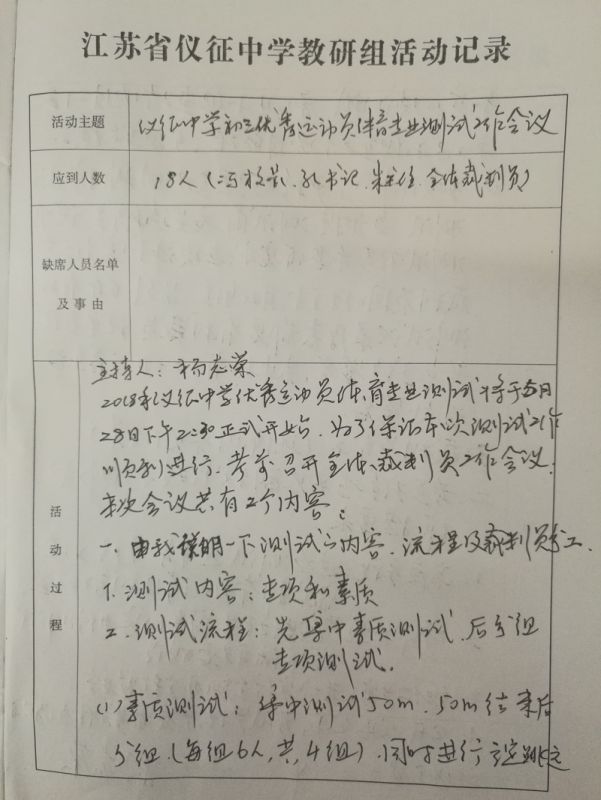 江苏省仪征中学教研组活动记录
活动主题 仪征中学初三优秀运动员体育专业测试工作会议
应到人数 18人(冯校长、孔书记、朱主任、全体裁判员)
缺席人员名单
及事由
活动过程
主持人:杨志荣
2018年仪征中学优秀运动员体育专业测试将于5月
28日下午2:30正式开始,为了保证本次测试工作
顺利进行,考前召开全体裁判员工作会议,
本次会议共有2个内容:
一、由我说明一下测试的内容、流程及裁判员分工.
1.测试内容:专项和素质
2.测试流程:先集中素质测试,后分组
专项测试.
(1)素质测试:集中测试50m,50m结束后
分组(每组6人,共4组),同时进行立定跳远